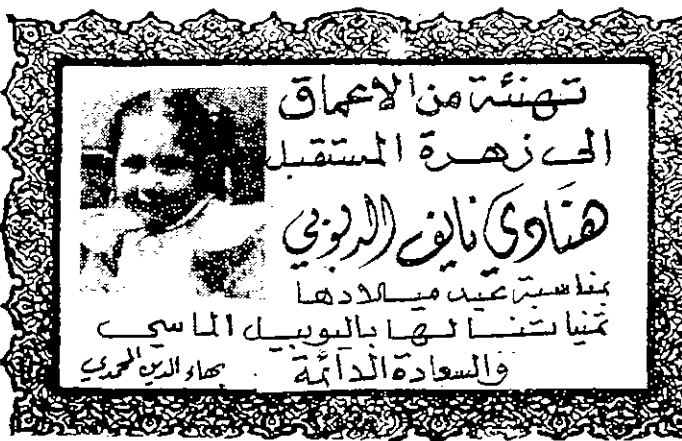 تهنئة من الاعماق
الى زهرة المستقبل
هنادي نايف الدبوبي
بمناسبة عيد ميلادها
تمنياتنا لها باليوبيل الماسي
والسعادة الدائمة
بهاء الدين المحمدي